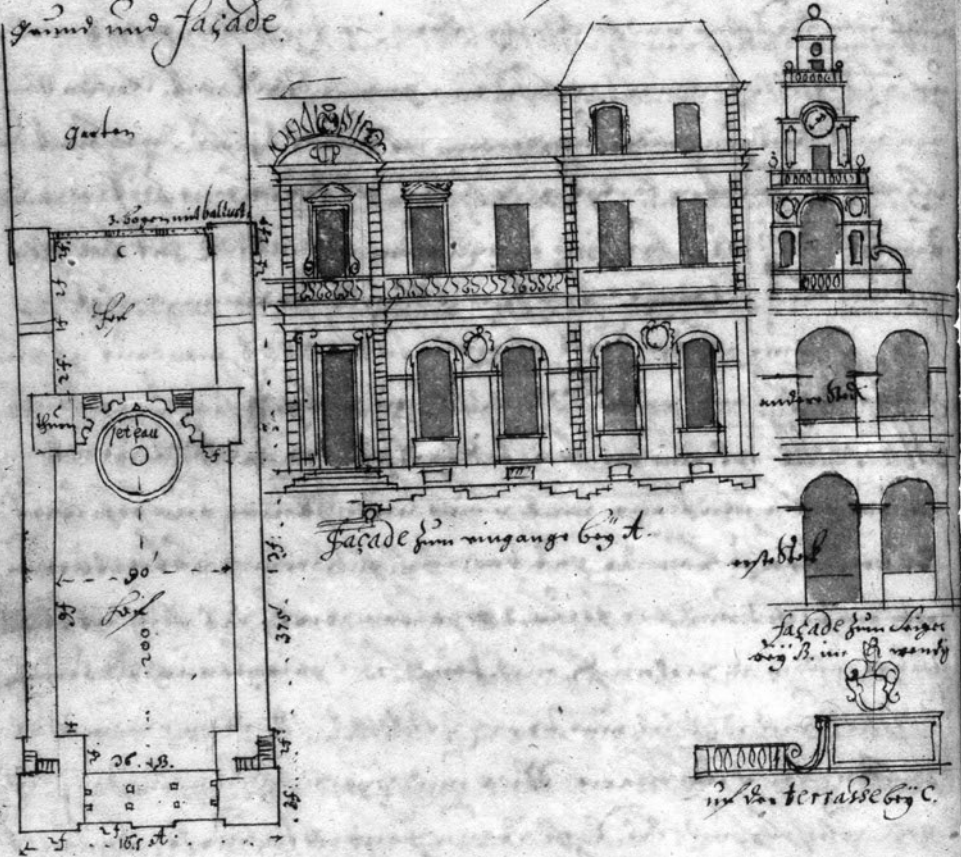 Grund und façade.
garten
3. bogen mit ballust.
C
hof
thurn
jeteau
90
hof
200
375
36. B.
16.5 A.
façade zum eingange beÿ A.
andere Stock
erste Stock
façade zum Seiger
beÿ B. inwendig
uf der terrasse beÿ C.